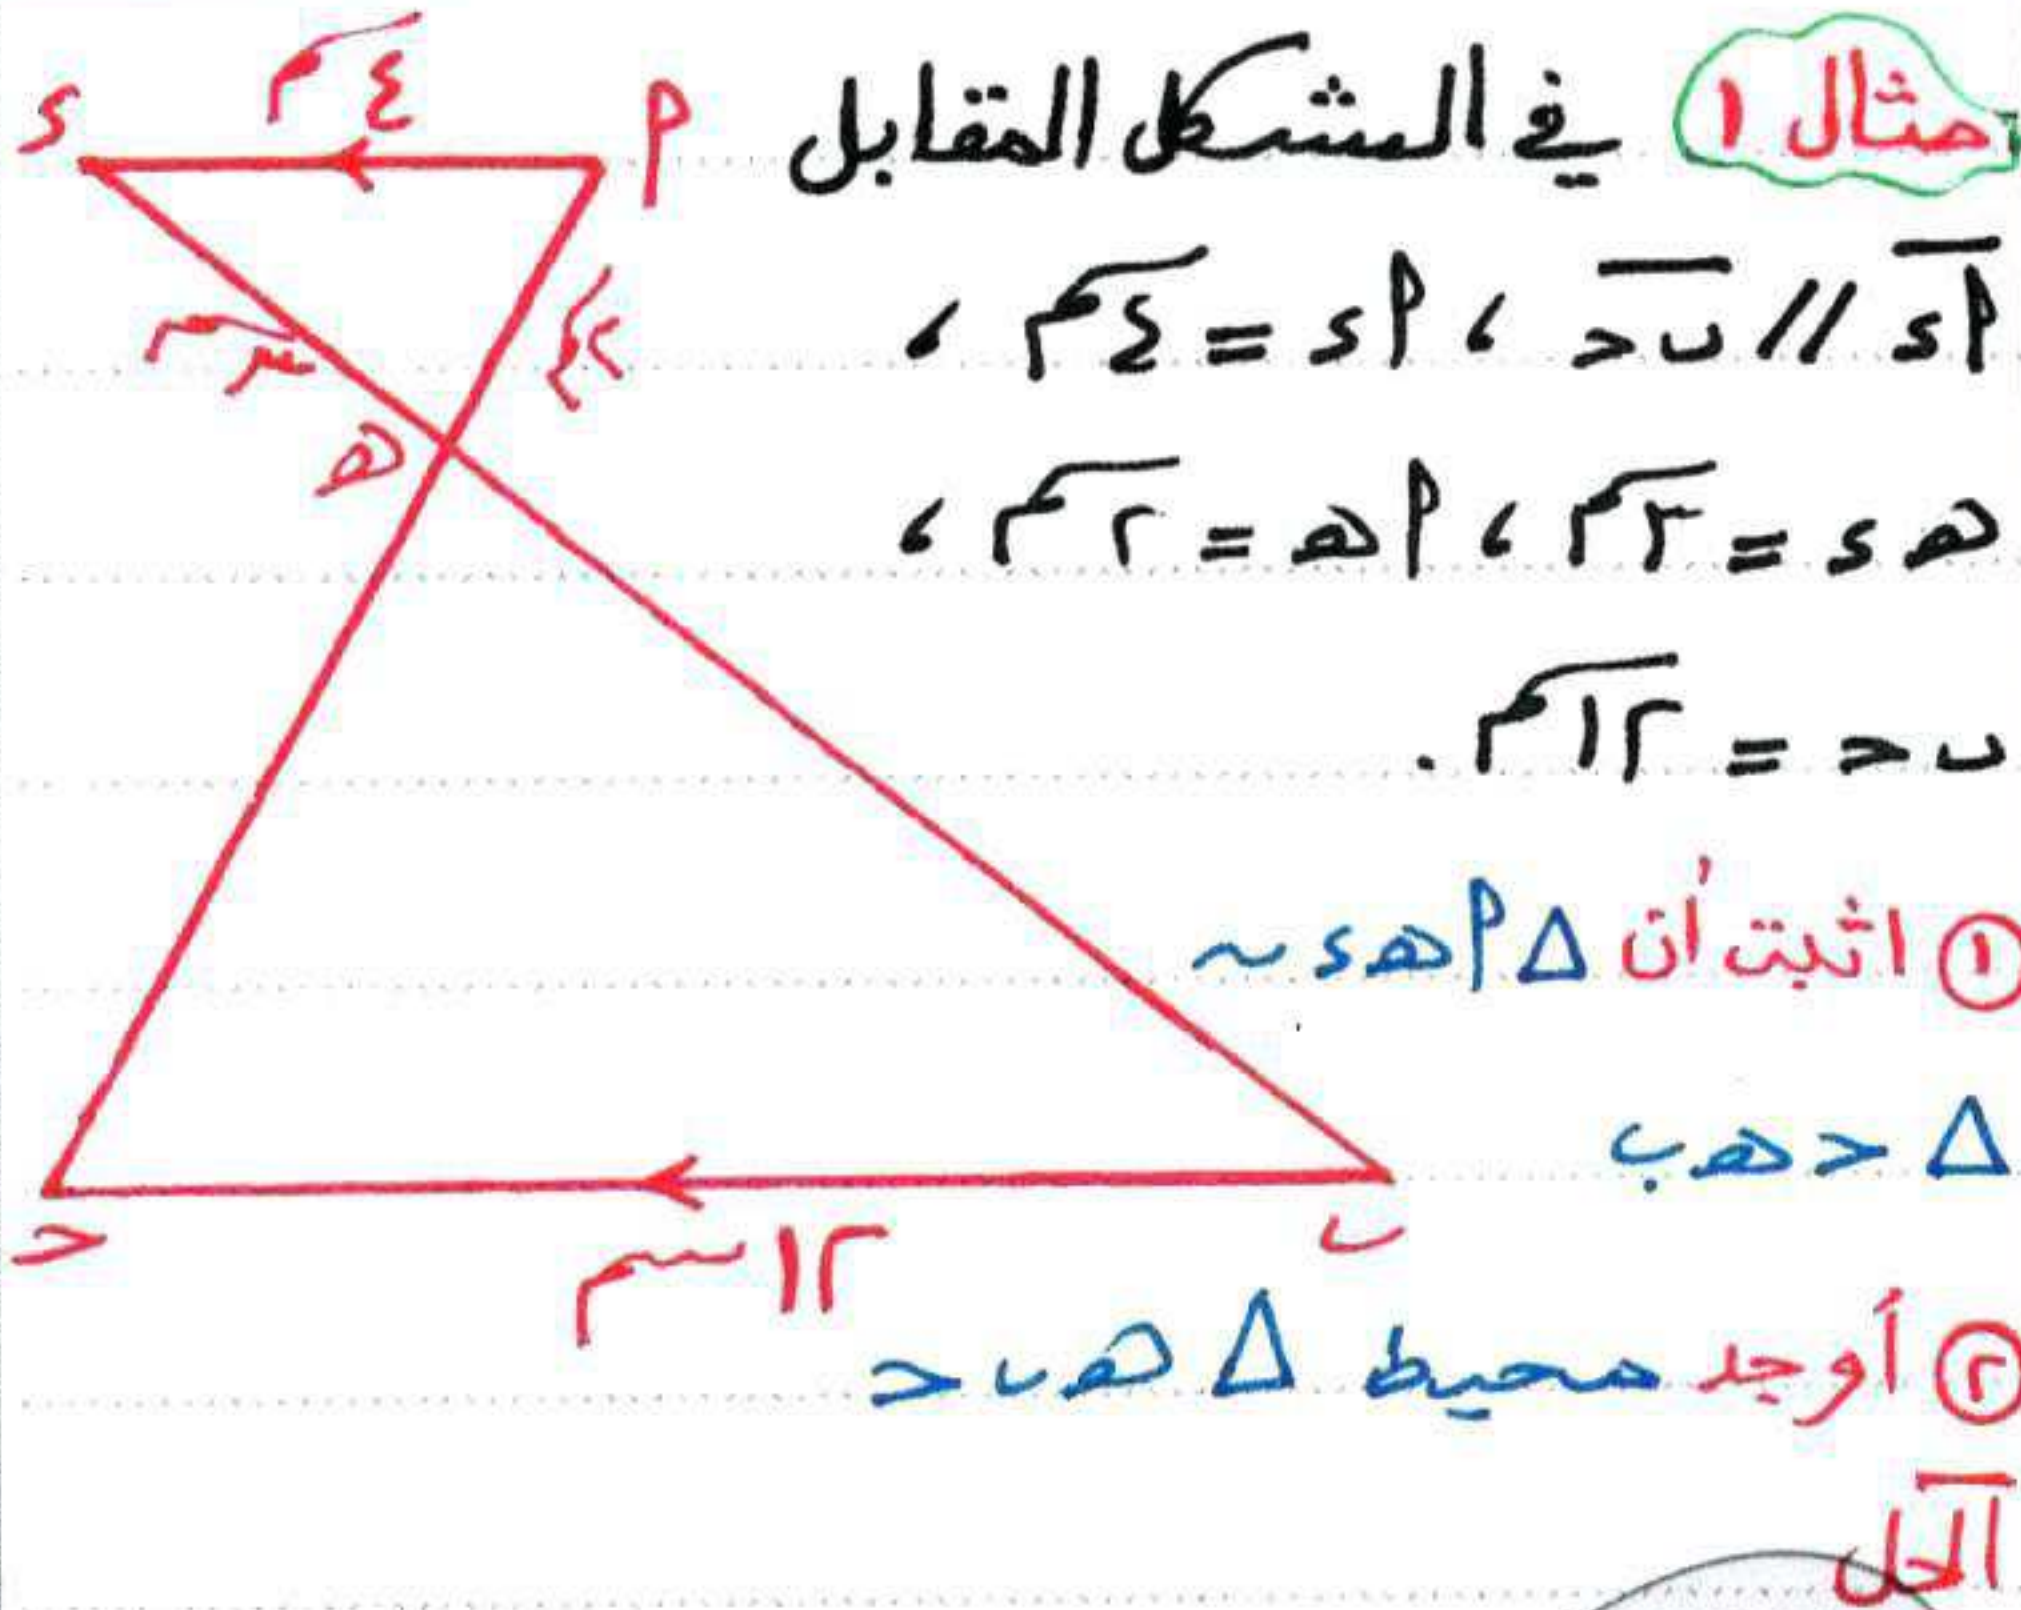 مثال ١ في الشكل المقابل
أء // ب حـ ، أء = ٤ سم ،
هـ ء = ٣ سم ، أهـ = ٢ سم ،
ب حـ = ١٢ سم .
① اثبت أن Δ أهـ ء ~
Δ حـ هـ ب
② أوجد محيط Δ هـ ب حـ
الحل
ء
٤ سم
أ
٣ سم
٢ سم
هـ
حـ
١٢ سم
ب